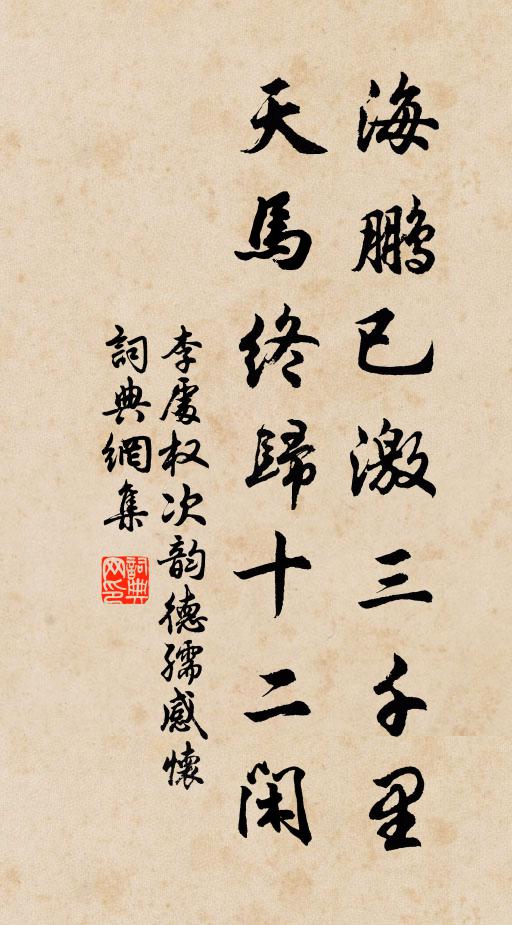 海鹏已激三千里
天馬终歸十二闲
李處权次韵德孺感懷
詞典網集
詞典网印